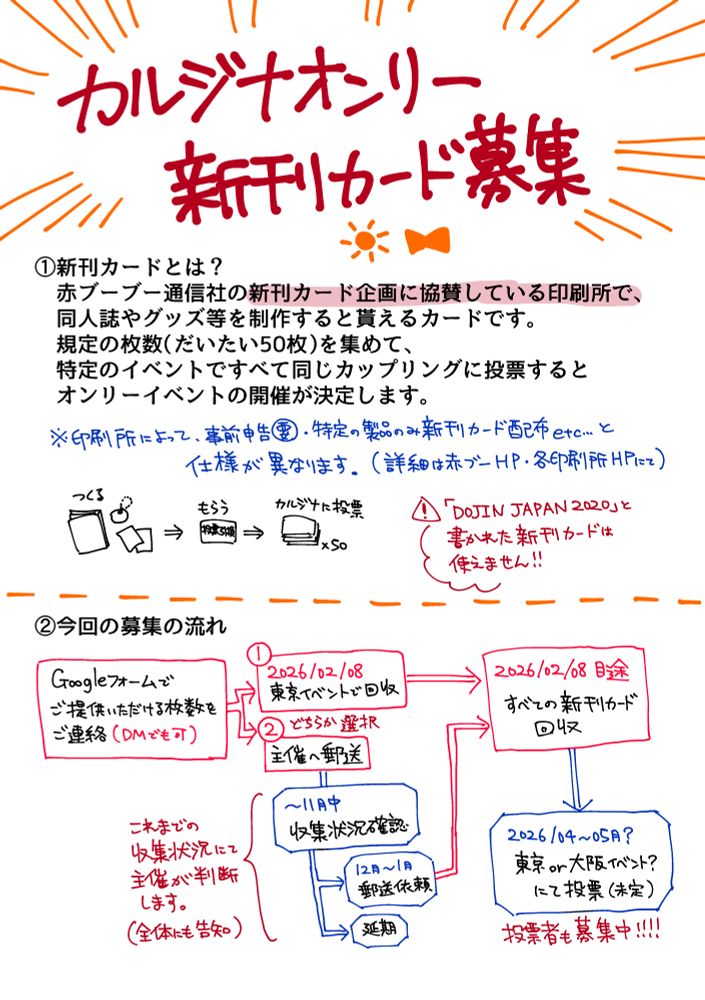 カルジナオンリー
新刊カード募集
①新刊カードとは？
赤ブーブー通信社の新刊カード企画に協賛している印刷所で、
同人誌やグッズ等を制作すると貰えるカードです。
規定の枚数(だいたい50枚)を集めて、
特定のイベントですべて同じカップリングに投票すると
オンリーイベントの開催が決定します。
※印刷所によって、事前申告要・特定の製品のみ新刊カード配布etc…と
仕様が異なります。(詳細は赤ブーHP・各印刷所HPにて)
つくる
もらう
カルジナに投票
×50
⚠「DOJIN JAPAN 2020」と
書かれた新刊カードは
使えません!!
②今回の募集の流れ
Googleフォームで
ご提供いただける枚数を
ご連絡(DMでも可)
①
2026/02/08
東京イベントで回収
②どちらか選択
主催へ郵送
～11月中
収集状況確認
12月～1月
郵送依頼
延期
これまでの
収集状況にて
主催が判断
します。
(全体にも告知)
2026/02/08 目途
すべての新刊カード
回収
2026/04～05月?
東京or大阪イベント?
にて投票(未定)
投票者も募集中!!!!